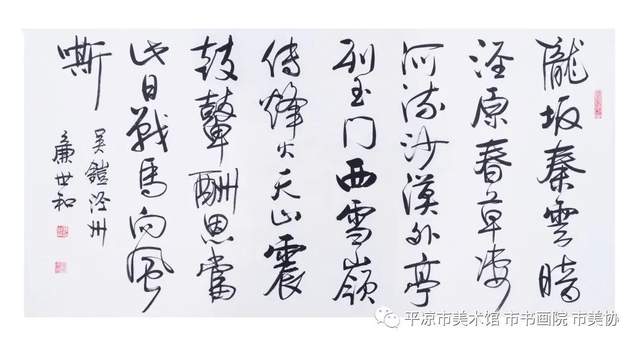 隴坂秦雲暗
泾原春草凄
河流沙漠外亭
列玉门西雪嶺
传烽火天山震
鼓鼙酬恩當
此日戰馬向風
嘶
吴鎧泾州
廉世和
平凉市美术馆 市书画院 市美协